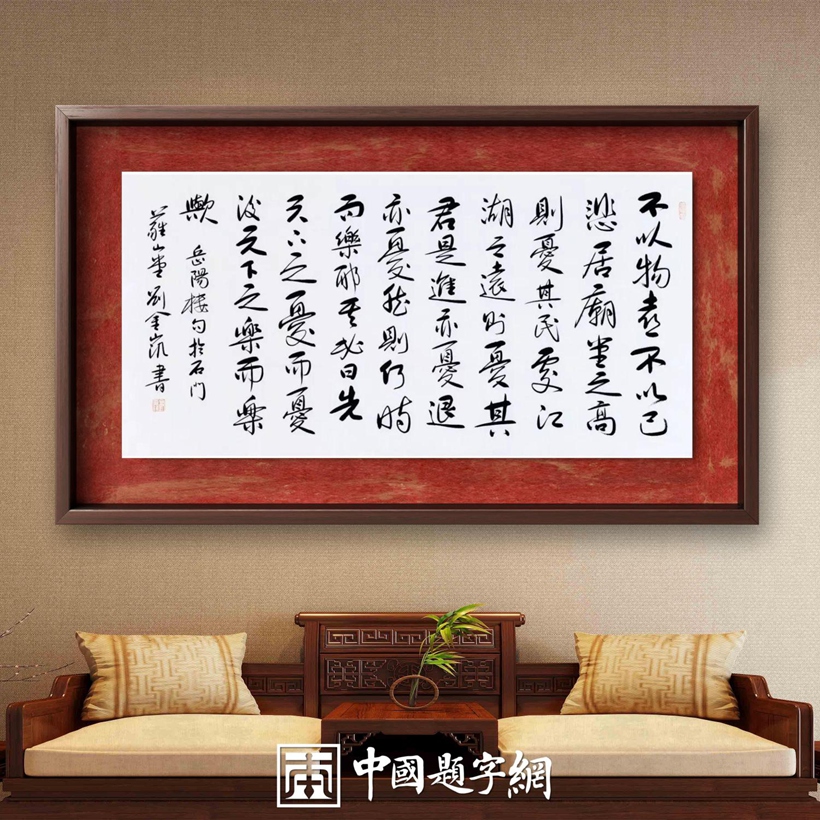 不以物喜不以己
悲居廟堂之高
則憂其民處江
湖之遠则憂其
君是進亦憂退
亦憂然則何時
而樂耶其必曰先
天下之憂而憂
後天下之樂而樂
歟
岳陽楼句於石门
山堂刘金凯書
中國題字網